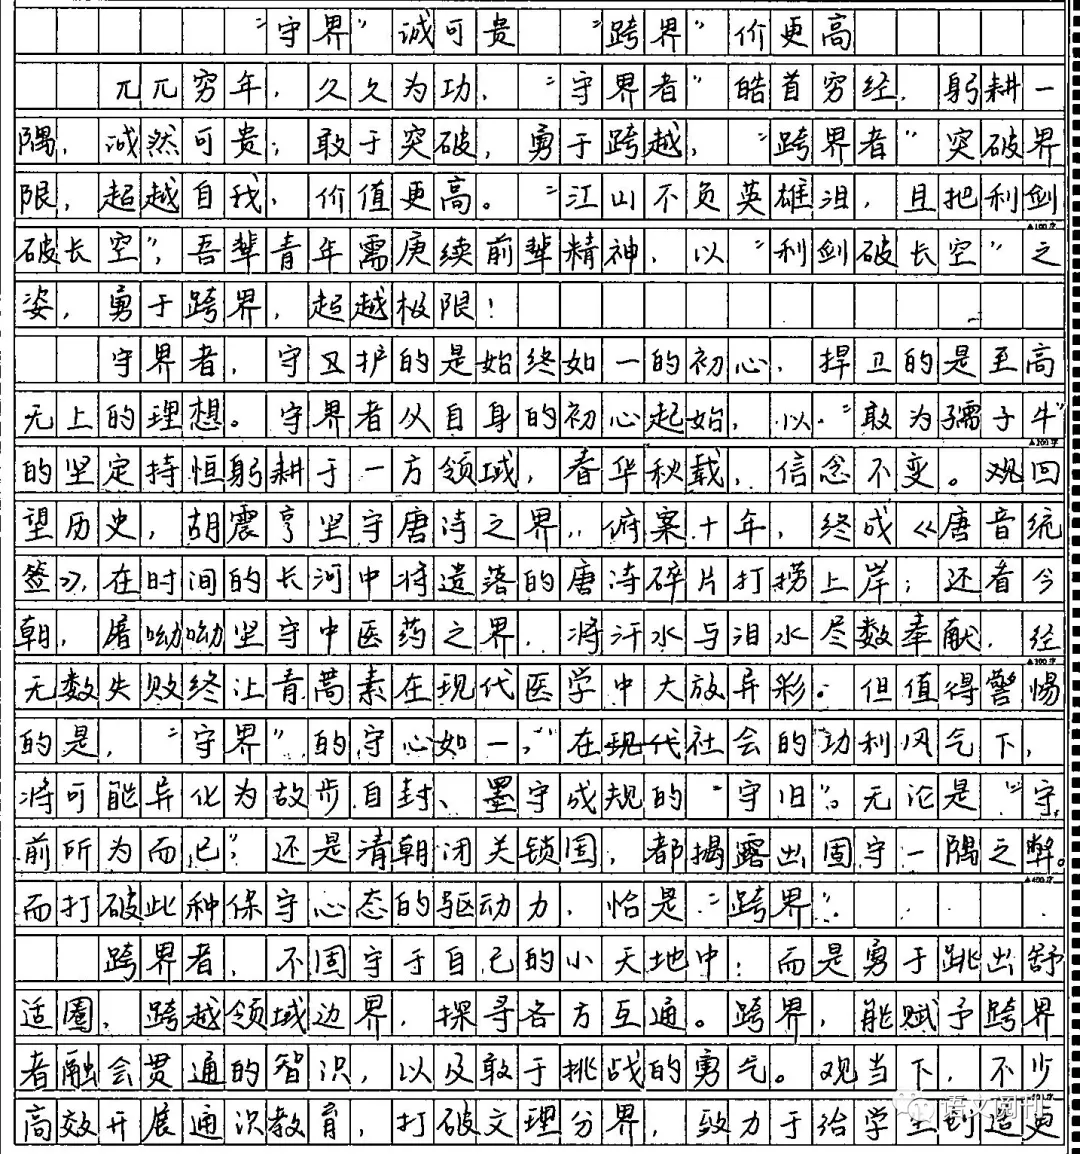 “守界”诚可贵 “跨界”价更高
兀兀穷年，久久为功，“守界者”皓首穷经，躬耕一
隅，诚然可贵；敢于突破，勇于跨越，“跨界者”突破界
限，超越自我，价值更高。“江山不负英雄泪，且把利剑
破长空”，吾辈青年需赓续前辈精神，以“利剑破长空”之
姿，勇于跨界，超越极限！
守界者，守卫护的是始终如一的初心，捍卫的是至高
无上的理想。守界者从自身的初心起始，以“敢为孺子牛”
的坚定持恒躬耕于一方领域，春华秋载，信念不变。观回
望历史，胡震亨坚守唐诗之界，俯案十年，终成《唐音统
签》，在时间的长河中将遗落的唐诗碎片打捞上岸；还看今
朝，屠呦呦坚守中医药之界，将汗水与泪水尽数奉献，经
无数失败终让青蒿素在现代医学中大放异彩。但值得警惕
的是，“守界”的守心如一，在现代社会的功利风气下，
将可能异化为故步自封、墨守成规的“守旧”。无论是“守
前所为而已”，还是清朝闭关锁国，都揭露出固守一隅之弊。
而打破此种保守心态的驱动力，恰是“跨界”。
跨界者，不固守于自己的小天地中；而是勇于跳出舒
适圈，跨越领域边界，探寻各方互通。跨界，能赋予跨界
者融会贯通的智识，以及敢于挑战的勇气。观当下，不少
高效开展通识教育，打破文理分界，致力于给学生创造更
语文阅刊